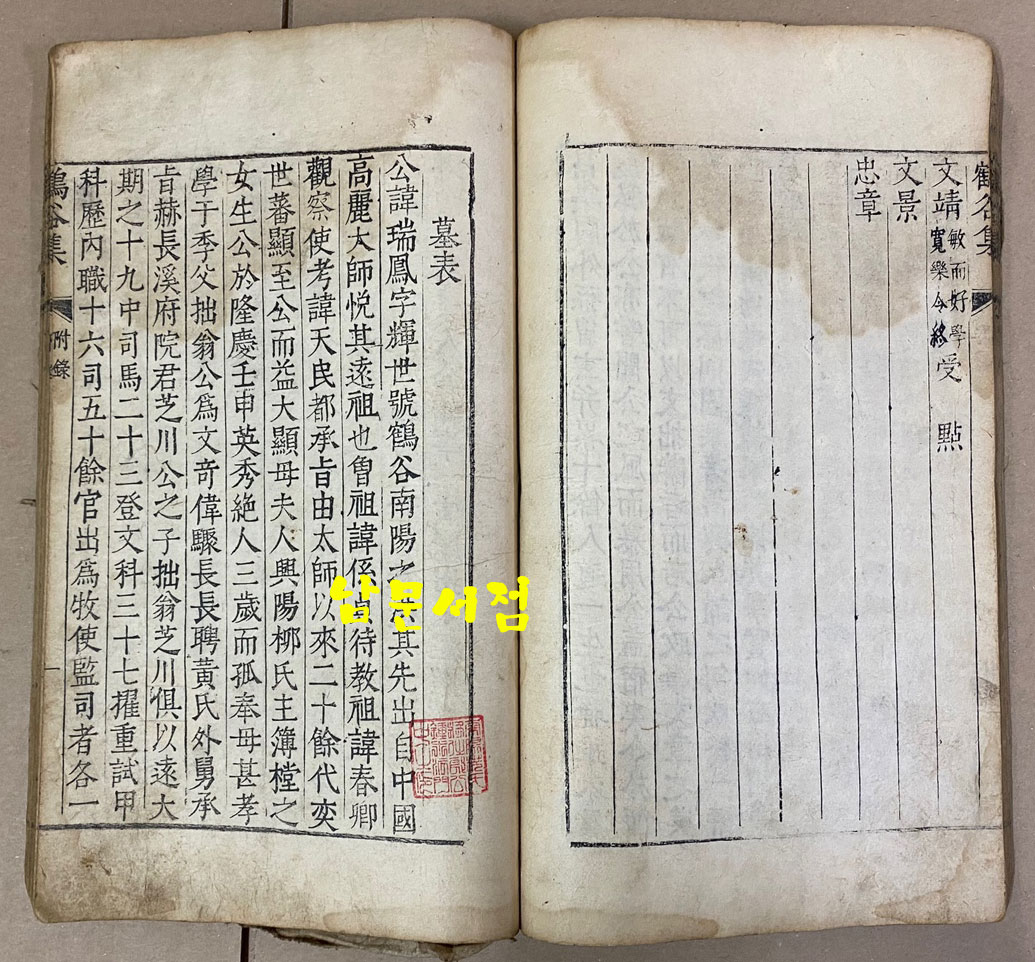 鶴谷集
文靖 敏而好學 寬樂令終 受 點
文景
忠章
墓表
公諱瑞鳳字輝世號鶴谷南陽之洪其先出自中國
高麗大師悅其遠祖也曾祖諱係貞待教祖諱春卿
觀察使考諱天民都承旨由太師以來二十餘代奕
世蕃顯至公而益大顯母夫人興陽柳氏主簿樘之
女生公於隆慶壬申英秀絶人三歲而孤奉母甚孝
學于季父拙翁公爲文竒偉驟長長聘黃氏外舅承
旨赫長溪府院君芝川公之子拙翁芝川俱以遠大
期之十九中司馬二十三登文科三十七擢重試甲
科歷內職十六司五十餘官出爲牧使監司者各一
鶴谷集 附錄 一
남문서점